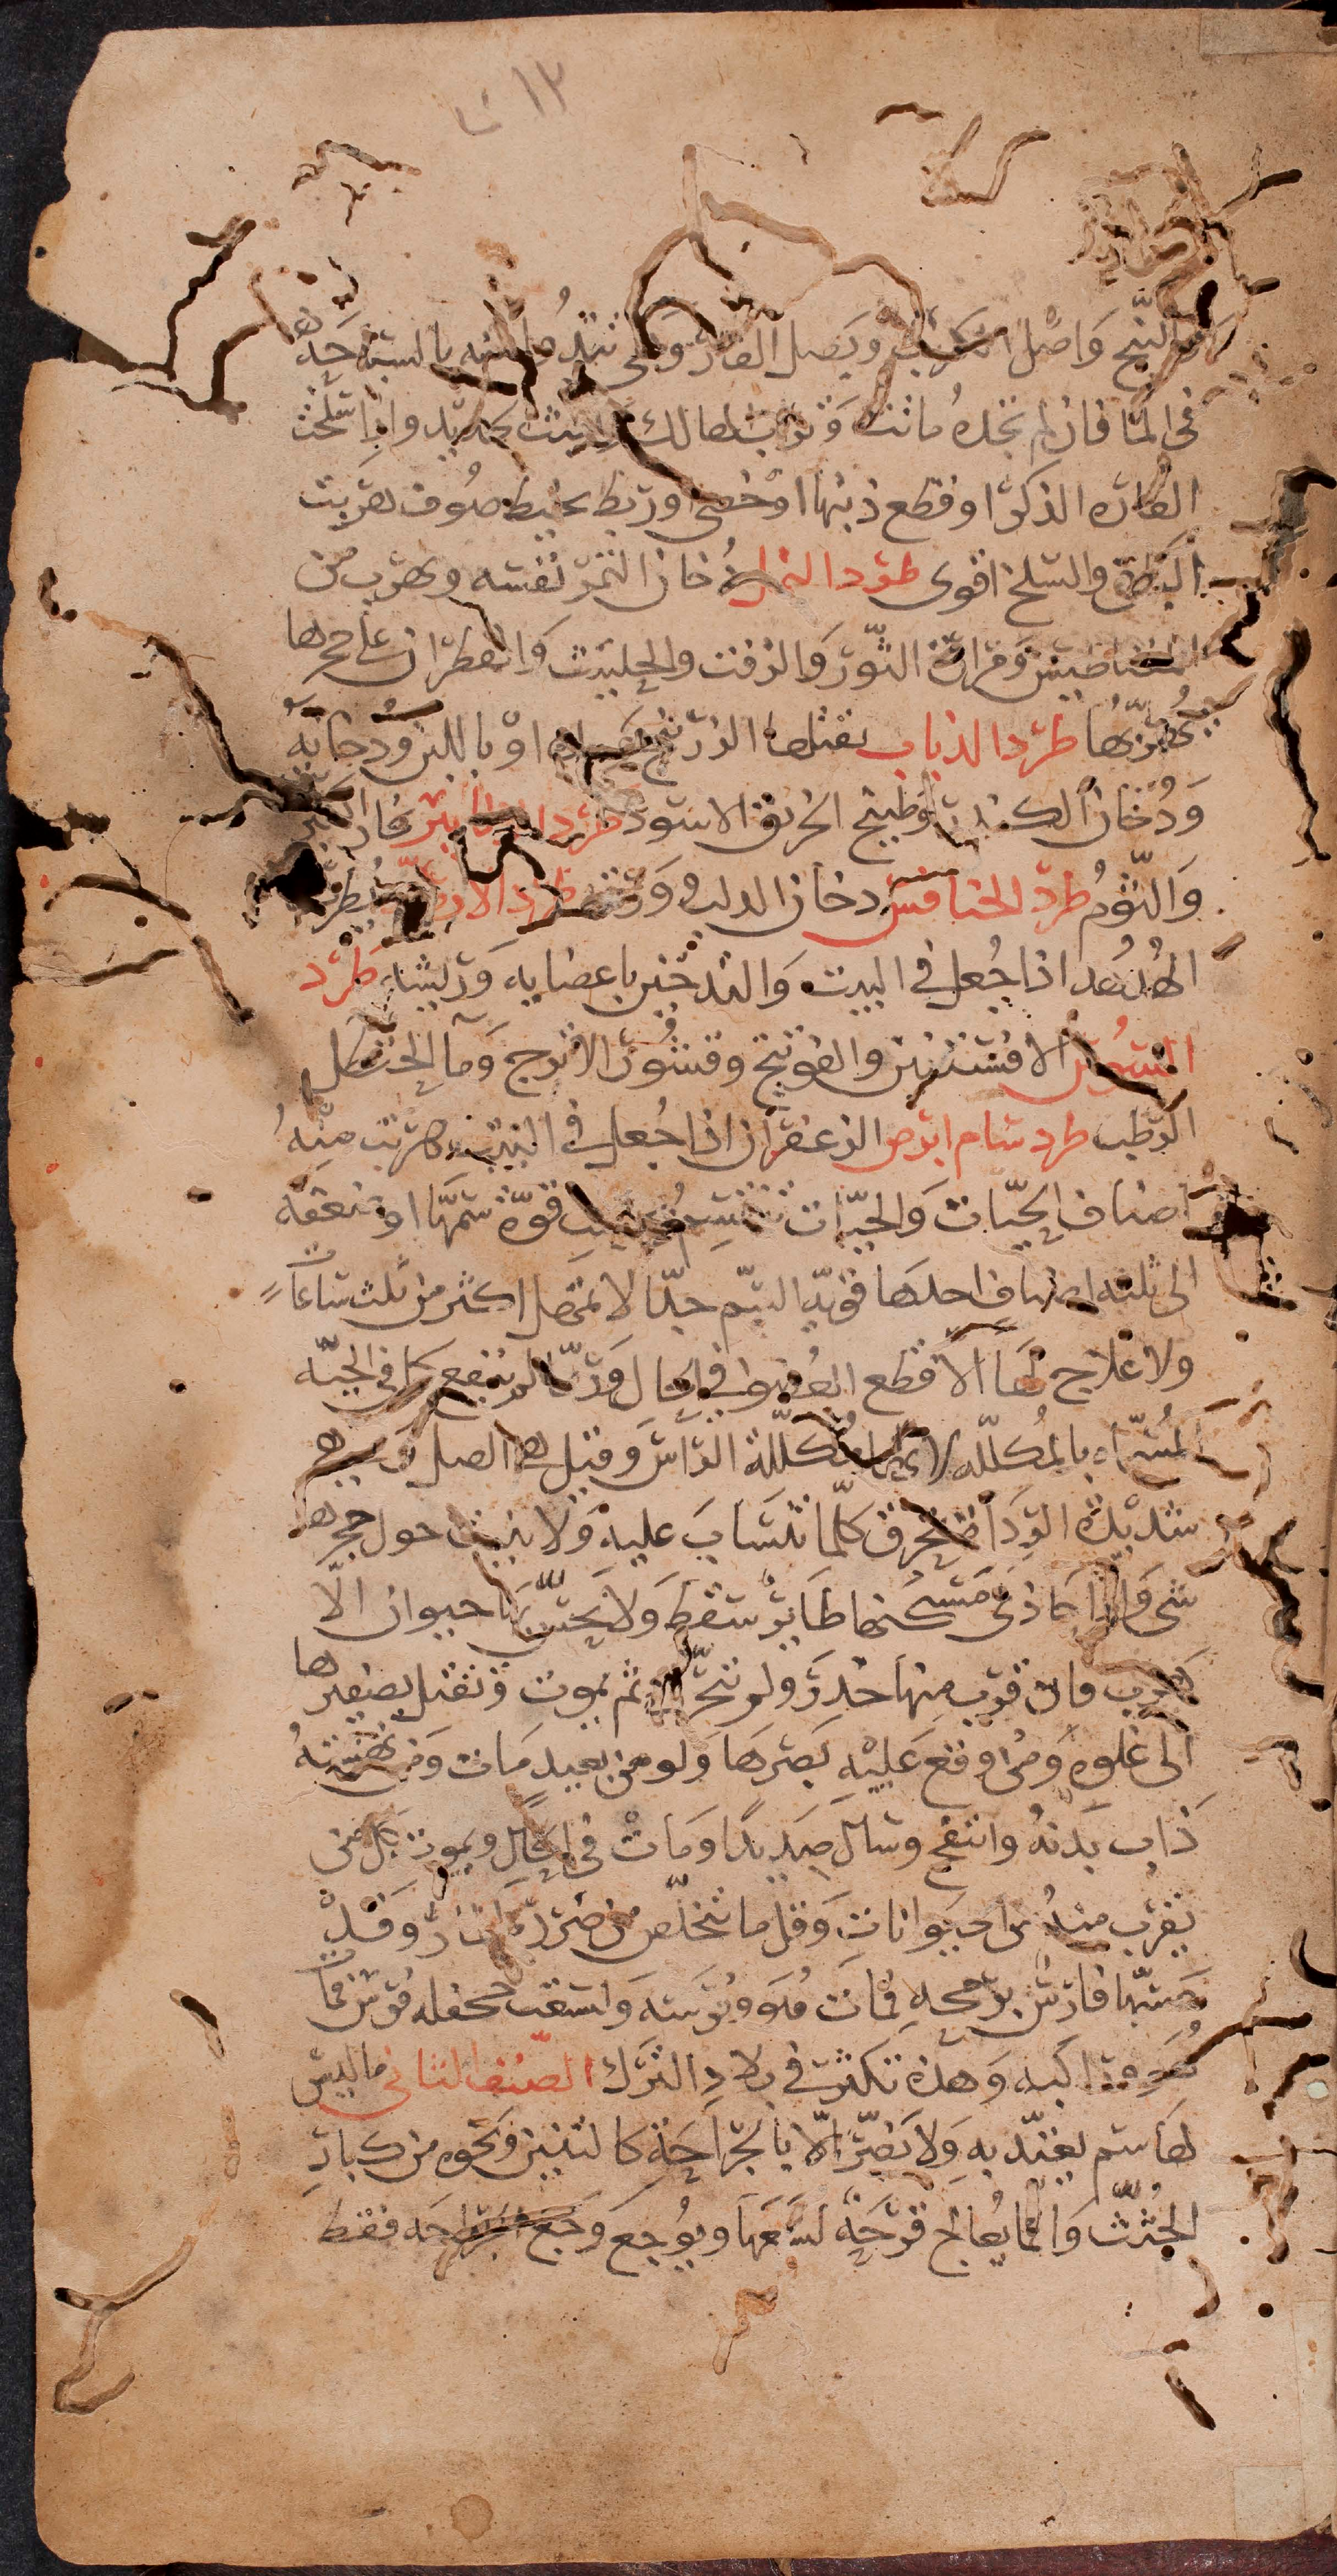 ١٢
والبنج واصل الكرنب وبصل الفار وهى تشد
فى الما فان لم تجده ماتت وتراب الهالك لا يبث بحديد واذا سلخت
الفاره الذكر او قطع ذنبها او خصى او ربط بخيط صوف هربت
البواقى والسلخ اقوى طرد النمل دخان النمر نفسه ويهرب من
المغناطيس ومرارة الثور والزفت والحلتيت والقطران على جحرها
يهربها طرد الذباب يقتلها الزرنيخ او باللبن ودخانه
ودخان الكندر وطبيخ الخربق الاسود طرد الزنابير بخار الكبريت
والثوم طرد الخنافس دخان الدلب وورقه طرد الارضه يطرد
الهدهد اذا جعل فى البيت والتدخين باعضايه وريشه طرد
السوس الافسنتين والفوتنج وقشور الاترج وما الحنظل
الرطب طرد سام ابرص الزعفران اذا جعل فى البيت هربت منه
اصناف الحيات والحيات تنقسم بحسب قوة سمها او ضعفه
الى ثلثه اصناف احدها قويه السم جدا لا تمهل اكثر من ثلث ساعات
ولا علاج لها الا قطع العضو فى الحال وربما لم ينفع كما فى الحيه
المسماه بالمكلله لانها مكللة الراس وقيل هى الصل
شديدة الرداه تحرق كلما تنساب عليه ولا ينبت حول جحرها
شى واذا حاذى مسكنها طاير سقط ولا يحس بها حيوان الا
هرب فان قرب منها خدر ولم يتحرك ثم يموت وتقتل بصفيرها
الى غلوه ومن وقع عليه بصرها ولو من بعيد مات ومن نهشته
ذاب بدنه وانتفخ وسال صديدا ومات فى الحال ويموت كل من
يقرب منه من الحيوانات وقل ما تخلص من ضررها وقد
مسها فارس برمحه فمات هو وفرسه ولسعت جحفله فرس فمات
هو وراكبه وهذه تكثر فى بلاد الترك الصنف الثانى ما ليس
لها سم يعتد به ولا يضر الا بالجراحة كالتنين ونحوه من كبار
الجثث وانما يعالج قرحة لسعها ويوجع وجع الجراحه فقط